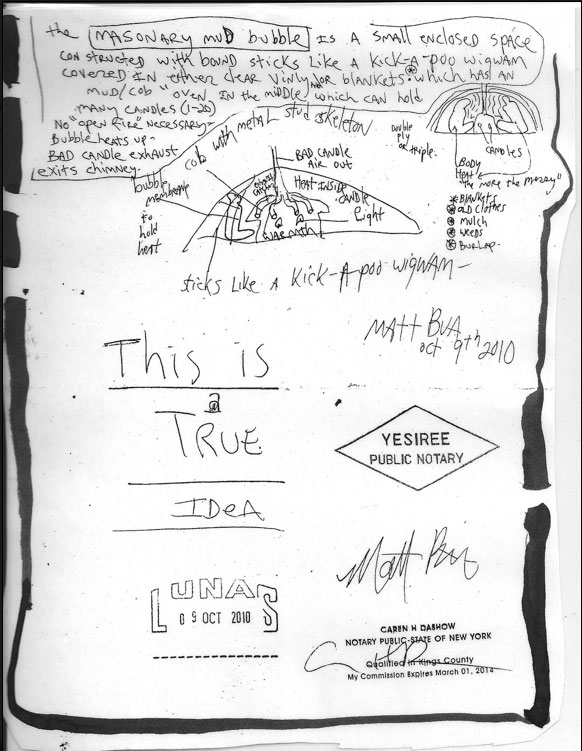 the MASONARY MUD bubble IS A SMALL ENCLOSED SPACE
CONSTRUCTED WITH BOUND STICKS LIKE A KICK-A-POO WIGWAM
COVERED IN EITHER CLEAR VINYL OR BLANKETS * WHICH HAS AN
MUD/COB "OVEN IN THE MIDDLE AND WHICH CAN HOLD
MANY CANDLES (1-20)
NO "OPEN FIRE" NECESSARY-
BUBBLE HEATS UP-
BAD CANDLE EXHAUST
EXITS CHIMNEY.
COB WITH METAL STUD SKELETON
DOUBLE
PLY
OR TRIPLE.
BAD CANDLE
AIR OUT
CANDLES
BODY
HEAT
"the MORE the MERRY"
bubble
membrane
to
hold
heat
HEAT INSIDE
CANDLE
light
WARMTH
* BLANKETS
* OLD CLOTHES
* MULCH
* WEEDS
* BURLAP
STICKS LIKE A KICK-A-POO WIGWAM-
MATT BUA
OCT 9th 2010
This is
a
TRUE
IDeA
YESIREE
PUBLIC NOTARY
LUNAS
09 OCT 2010
CAREN H DASHOW
NOTARY PUBLIC-STATE OF NEW YORK
Qualified in Kings County
My Commission Expires March 01, 2014